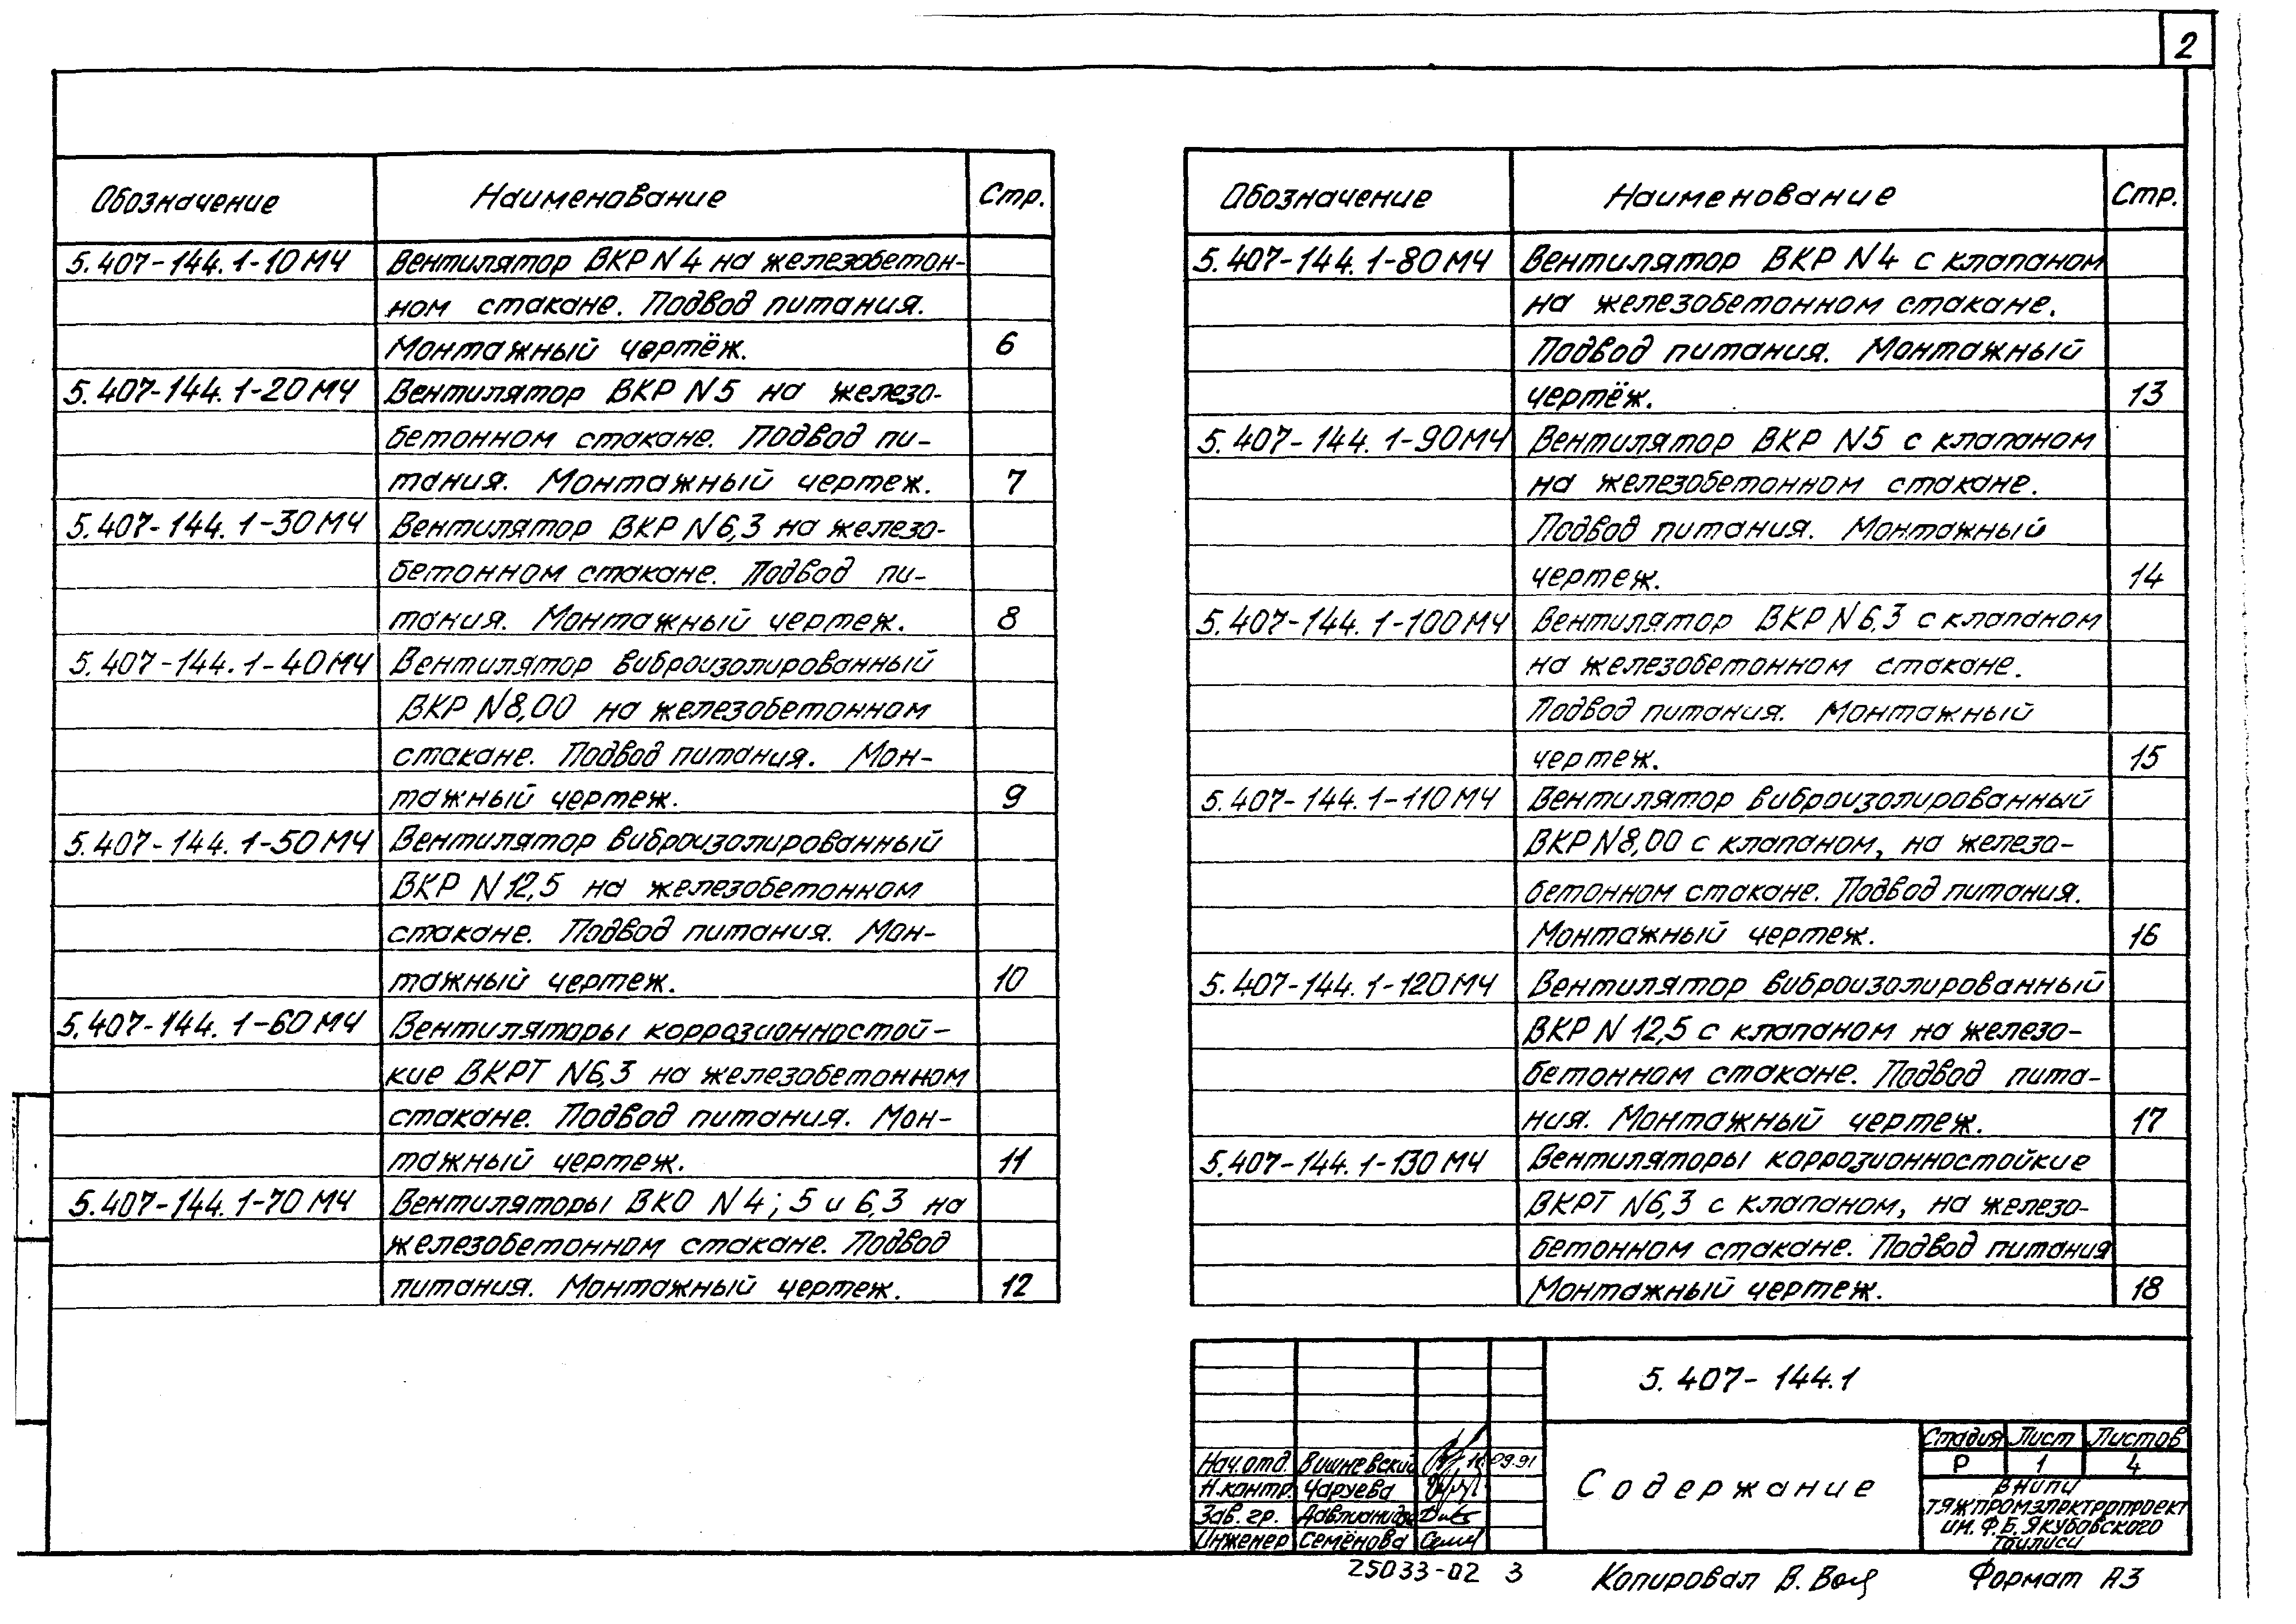 2
Обозначение Наименование Стр.
5.407-144.1-10МЧ Вентилятор ВКР N4 на железобетон-
ном стакане. Подвод питания.
Монтажный чертёж. 6
5.407-144.1-20МЧ Вентилятор ВКР N5 на железо-
бетонном стакане. Подвод пи-
тания. Монтажный чертеж. 7
5.407-144.1-30МЧ Вентилятор ВКР N6,3 на железо-
бетонном стакане. Подвод пи-
тания. Монтажный чертеж. 8
5.407-144.1-40МЧ Вентилятор виброизолированный
ВКР N8,00 на железобетонном
стакане. Подвод питания. Мон-
тажный чертеж. 9
5.407-144.1-50МЧ Вентилятор виброизолированный
ВКР N12,5 на железобетонном
стакане. Подвод питания. Мон-
тажный чертеж. 10
5.407-144.1-60МЧ Вентиляторы коррозионностой-
кие ВКРТ N6,3 на железобетонном
стакане. Подвод питания. Мон-
тажный чертеж. 11
5.407-144.1-70МЧ Вентиляторы ВКО N4; 5 и 6,3 на
железобетонном стакане. Подвод
питания. Монтажный чертеж. 12
Обозначение Наименование Стр.
5.407-144.1-80МЧ Вентилятор ВКР N4 с клапаном
на железобетонном стакане.
Подвод питания. Монтажный
чертёж. 13
5.407-144.1-90МЧ Вентилятор ВКР N5 с клапаном
на железобетонном стакане.
Подвод питания. Монтажный
чертеж. 14
5.407-144.1-100МЧ Вентилятор ВКР N6,3 с клапаном
на железобетонном стакане.
Подвод питания. Монтажный
чертеж. 15
5.407-144.1-110МЧ Вентилятор виброизолированный
ВКР N8,00 с клапаном, на железо-
бетонном стакане. Подвод питания.
Монтажный чертеж. 16
5.407-144.1-120МЧ Вентилятор виброизолированный
ВКР N12,5 с клапаном на железо-
бетонном стакане. Подвод пита-
ния. Монтажный чертеж. 17
5.407-144.1-130МЧ Вентиляторы коррозионностойкие
ВКРТ N6,3 с клапаном, на железо-
бетонном стакане. Подвод питания
Монтажный чертеж. 18
5.407-144.1
Нач.отд. Вишневский 09.91
Н.контр. Чаруева
Зав.гр.
Инженер Семёнова
Содержание
Стадия Лист Листов
Р 1 4
ВНИПИ
Тяжпромэлектропроект
им. Ф.Б. Якубовского
Тбилиси
25033-02 3
Копировал В.
Формат А3